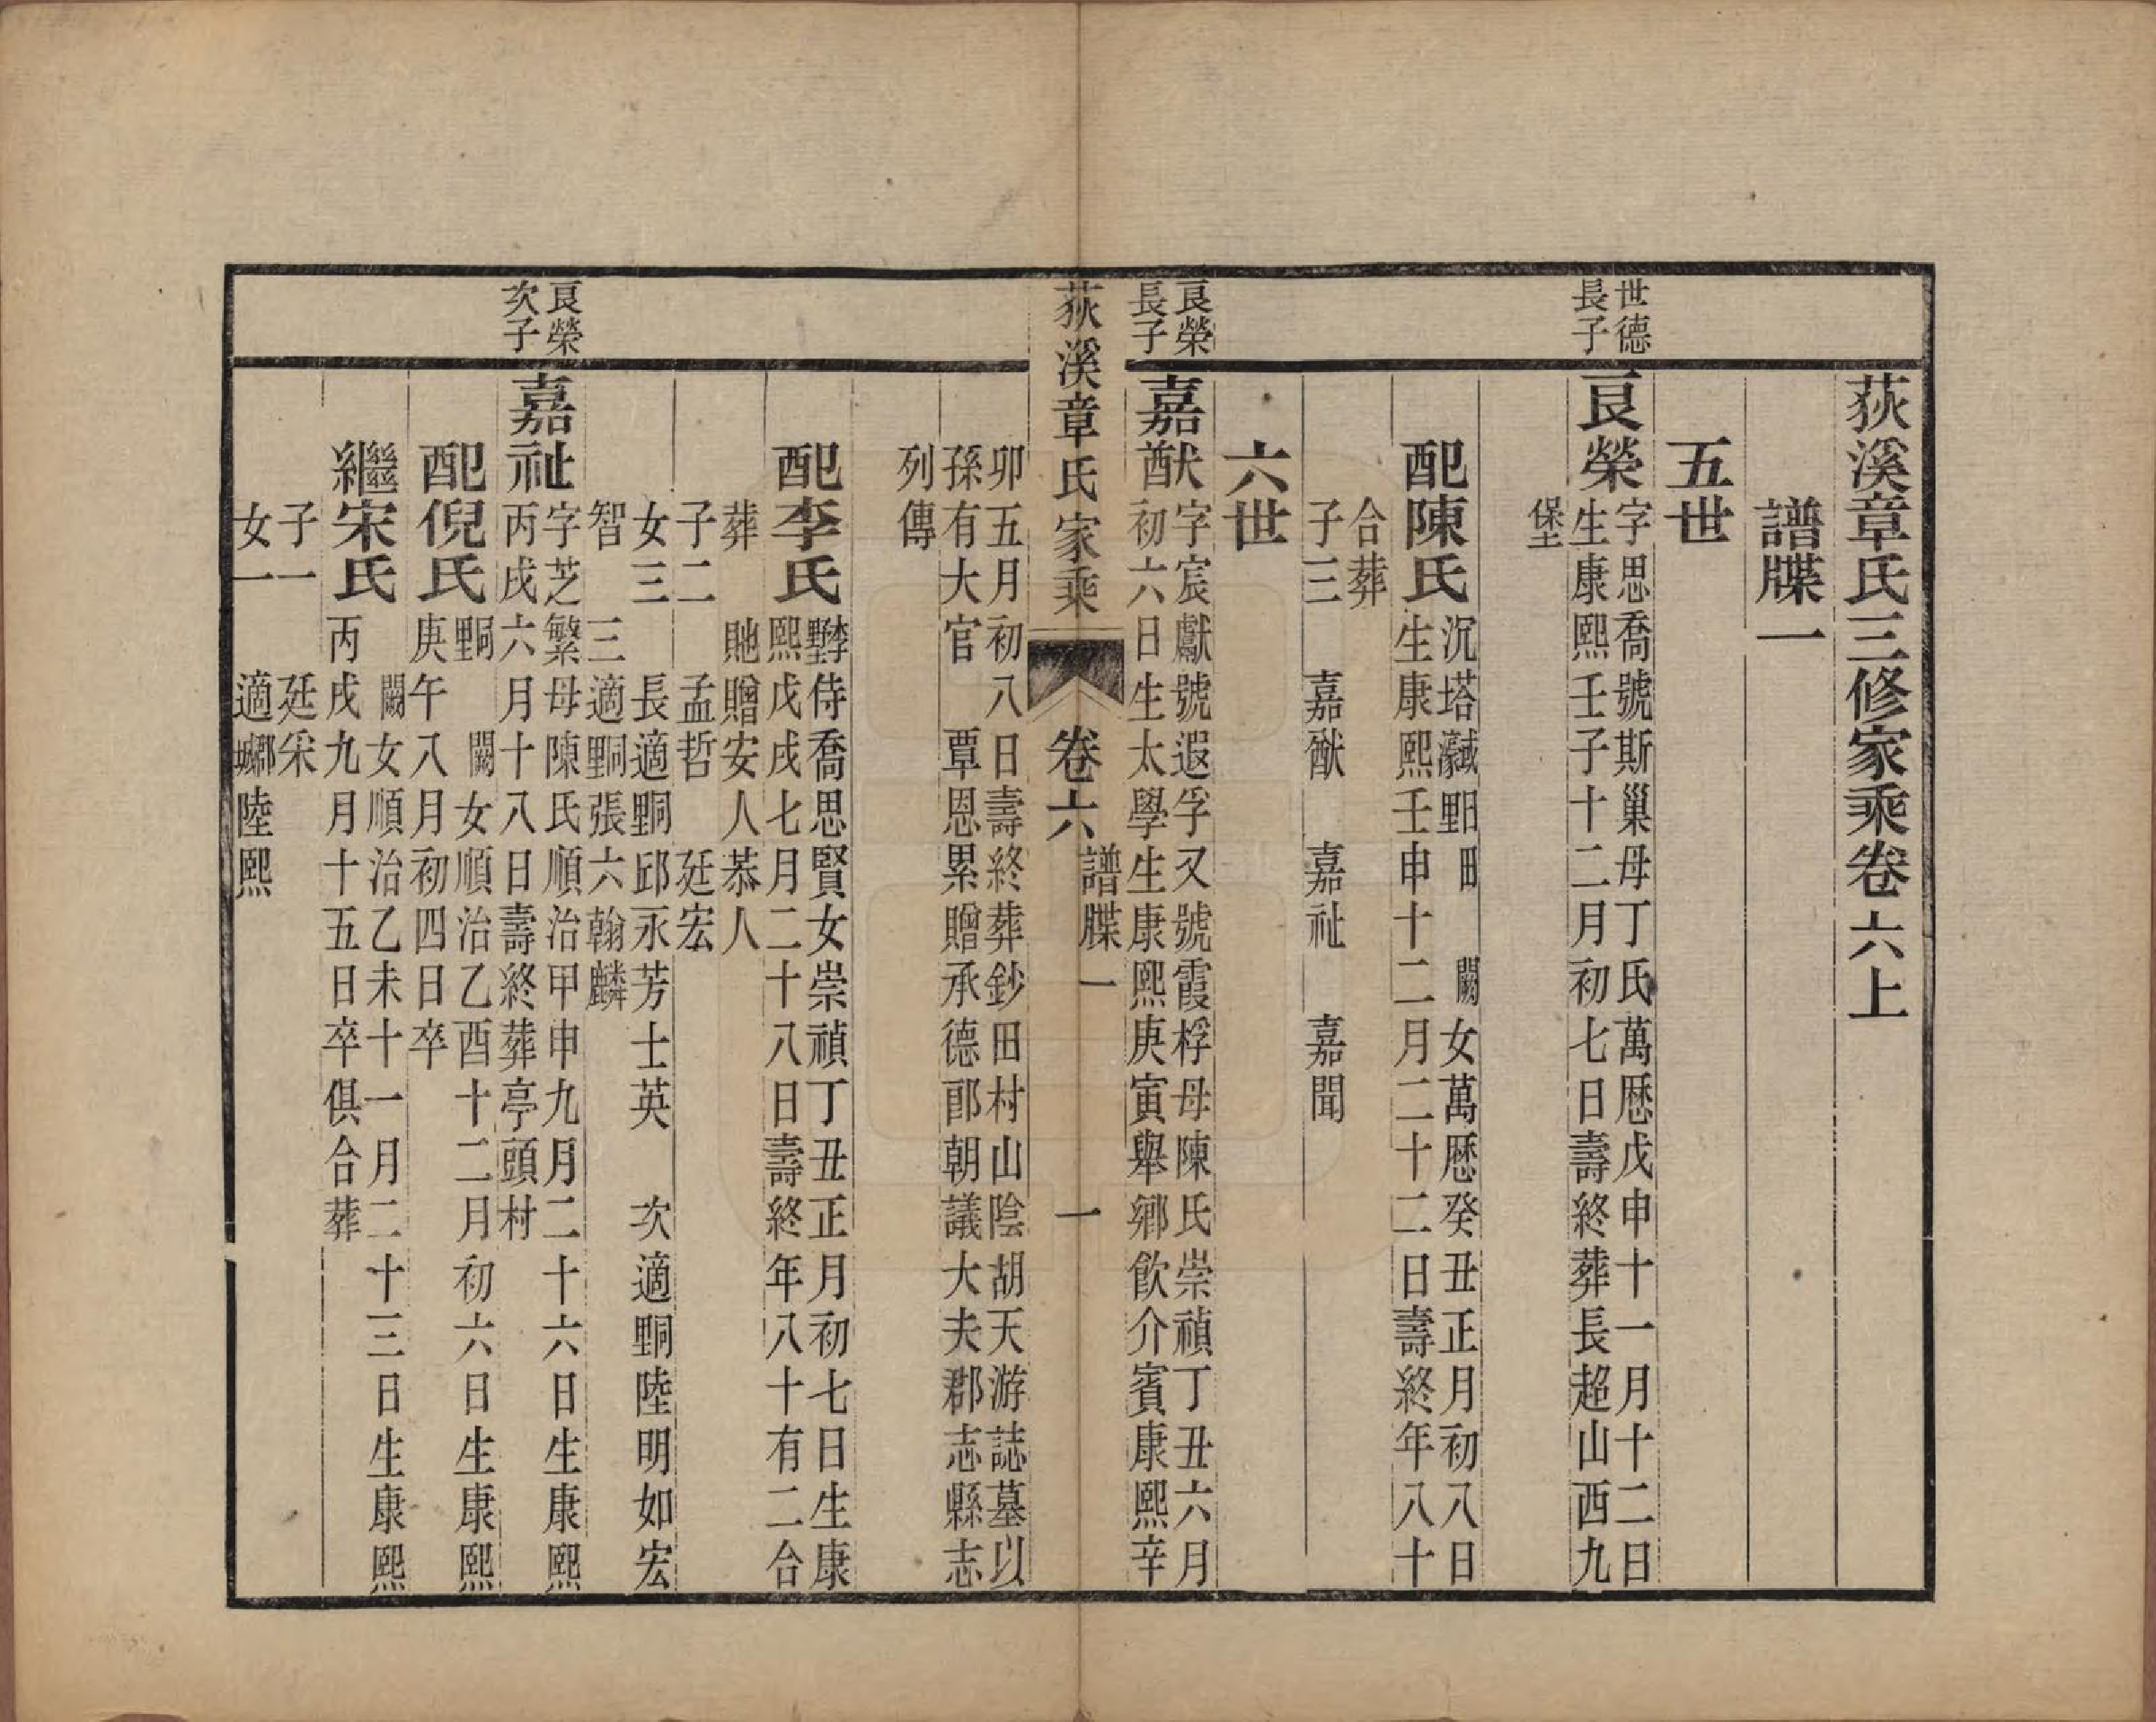 荻溪章氏三修家乘卷六上
譜牒一
五世
世德
長子
良榮
字思喬號斯巢母丁氏萬厯戊申十一月十二日
生康熙壬子十二月初七日壽終葬長超山西九
堡
配陳氏
沉塔
田 闕女萬厯癸丑正月初八日
生康熙壬申十二月二十二日壽終年八十
合葬
子三 嘉猷 嘉祉 嘉聞
六世
良榮
長子
嘉猷
字宸獻號遐孚又號霞桴母陳氏崇禎丁丑六月
初六日生太學生康熙庚寅舉鄉飲介賓康熙辛
荻溪章氏家乘 卷六 譜牒一 一
卯五月初八日壽終葬鈔田村山陰胡天游誌墓以
孫有大官 覃恩累贈承德郎朝議大夫郡志縣志
列傳
配李氏
侍喬思賢女崇禎丁丑正月初七日生康
熙戊戌七月二十八日壽終年八十有二合
葬 貤贈安人恭人
子二 孟哲 廷宏
女三 長適邱永芳士英 次適陸明如宏
智 三適張六翰麟
良榮
次子
嘉祉
字芝繁母陳氏順治甲申九月二十六日生康熙
丙戌六月十八日壽終葬亭頭村
配倪氏
闕女順治乙酉十二月初六日生康熙
庚午八月初四日卒
繼宋氏
闕女順治乙未十一月二十三日生康熙
丙戌九月十五日卒俱合葬
子一 廷寀
女一 適陸熙